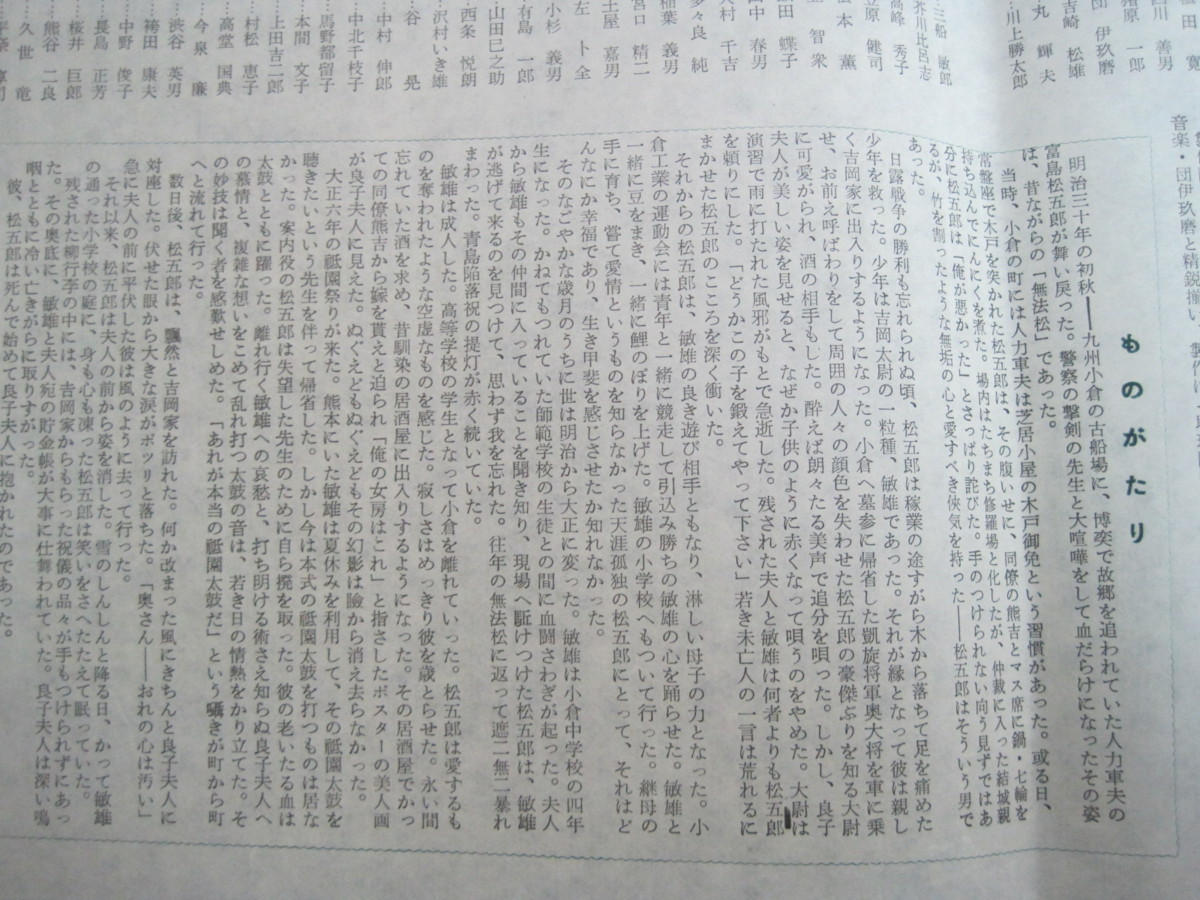 音楽・団伊玖磨と精鋭揃い、
善男
一郎
団 伊玖磨
吉崎 松雄
丸 輝夫
川上勝太郎
三船 敏郎
芥川比呂志
高峰 秀子
笠原 健司
松本 薫
智衆
田 蝶子
田中 春男
大村 千吉
多々良 純
稲葉 義男
宮口 精二
土屋 嘉男
左 卜全
小杉 義男
有島 一郎
山田巳之助
西条 悦朗
沢村いき雄
谷 晃
中村 伸郎
中北千枝子
馬野都留子
本間 文子
上田吉二郎
村松 恵子
高堂 国典
今泉 廉
渋谷 英男
袴田 康夫
中野 俊子
長島 正芳
桜井 巨郎
熊谷 二良
久世 竜
ものがたり
明治三十年の初秋――九州小倉の古船場に、博奕で故郷を追われていた人力車夫の
富島松五郎が舞い戻った。警察の撃剣の先生と大喧嘩をして血だらけになったその姿
は、昔ながらの「無法松」であった。
当時、小倉の町には人力車夫は芝居小屋の木戸御免という習慣があった。或る日、
常盤座で木戸を突かれた松五郎は、その腹いせに、同僚の熊吉とマス席に鍋・七輪を
持ち込んでにんにくを煮た。場内はたちまち修羅場と化したが、仲裁に入った結城親
分に松五郎は「俺が悪かった」とさっぱり詫びた。手のつけられない向う見ずではあ
るが、竹を割ったような無垢の心と愛すべき侠気を持った――松五郎はそういう男で
あった。
日露戦争の勝利も忘れられぬ頃、松五郎は稼業の途すがら木から落ちて足を痛めた
少年を救った。少年は吉岡大尉の一粒種、敏雄であった。それが縁となって彼は親し
く吉岡家に出入りするようになった。小倉へ墓参に帰省した凱旋将軍奥大将を車に乗
せ、お前え呼ばわりをして周囲の人々の顔色を失わせた松五郎の豪傑ぶりを知る大尉
に可愛がられ、酒の相手もした。酔えば朗々たる美声で追分を唄った。しかし、良子
夫人が美しい姿を見せると、なぜか子供のように赤くなって唄うのをやめた。大尉は
演習で雨に打たれた風邪がもとで急逝した。残された夫人と敏雄は何者よりも松五郎
を頼りにした。「どうかこの子を鍛えてやって下さい」若き未亡人の一言は荒れるに
まかせた松五郎のこころを深く衝いた。
それからの松五郎は、敏雄の良き遊び相手ともなり、淋しい母子の力となった。小
倉工業の運動会には青年と一緒に競走して引込み勝ちの敏雄の心を踊らせた。敏雄と
一緒に豆をまき、一緒に鯉のぼりを上げた。敏雄の小学校へもついて行った。継母の
手に育ち、嘗て愛情というものを知らなかった天涯孤独の松五郎にとって、それはど
んなにか幸福であり、生き甲斐を感じさせたか知れなかった。
そのなごやかな歳月のうちに世は明治から大正に変った。敏雄は小倉中学校の四年
生になった。かねてもつれていた師範学校の生徒との間に血闘さわぎが起った。夫人
から敏雄もその仲間に入っていることを聞き知り、現場へ駈けつけた松五郎は、敏雄
が逃げて来るのを見つけて、思わず我を忘れた。往年の無法松に返って遮二無二暴れ
まわった。青島陥落祝の提灯が赤く続いていた。
敏雄は成人した。高等学校の学生となって小倉を離れていった。松五郎は愛するも
のを奪われたような空虚なものを感じた。寂しさはめっきり彼を歳とらせた。永い間
忘れていた酒を求め、昔馴染の居酒屋に出入りするようになった。その居酒屋でかっ
ての同僚熊吉から嫁を貰えと迫られ「俺の女房はこれ」と指さしたポスターの美人画
が良子夫人に見えた。ぬぐえどもぬぐえどもその幻影は瞼から消え去らなかった。
大正六年の祗園祭りが来た。熊本にいた敏雄は夏休みを利用して、その祗園太鼓を
聴きたいという先生を伴って帰省した。しかし今は本式の祗園太鼓を打つものは居な
かった。案内役の松五郎は失望した先生のために自ら撥を取った。彼の老いたる血は
太鼓とともに躍った。離れ行く敏雄への哀愁と、打ち明ける術さえ知らぬ良子夫人へ
の慕情と、複雑な想いをこめて乱れ打つ太鼓の音は、若き日の情熱をかり立てた。そ
の妙技は聞く者を感歎せしめた。「あれが本当の祗園太鼓だ」という囁きが町から町
へと流れて行った。
数日後、松五郎は、飄然と吉岡家を訪れた。何か改まった風にきちんと良子夫人に
対座した。伏せた眼から大きな涙がポツリと落ちた。「奥さん――おれの心は汚い」
急に夫人の前に平伏した彼は風のように去って行った。
それ以来、松五郎は夫人の前から姿を消した。雪のしんしんと降る日、かって敏雄
の通った小学校の庭に、身も心も凍った松五郎は笑いをさへたたえて眠っていた。
残された柳行李の中には、吉岡家からもらった祝儀の品々が手もつけられずにあっ
た。その奥底に、敏雄と夫人宛の貯金帳が大事に仕舞われていた。良子夫人は深い嗚
咽とともに冷い亡きがらに取りすがった。
彼、松五郎は死んで始めて良子夫人に抱かれたのであった。